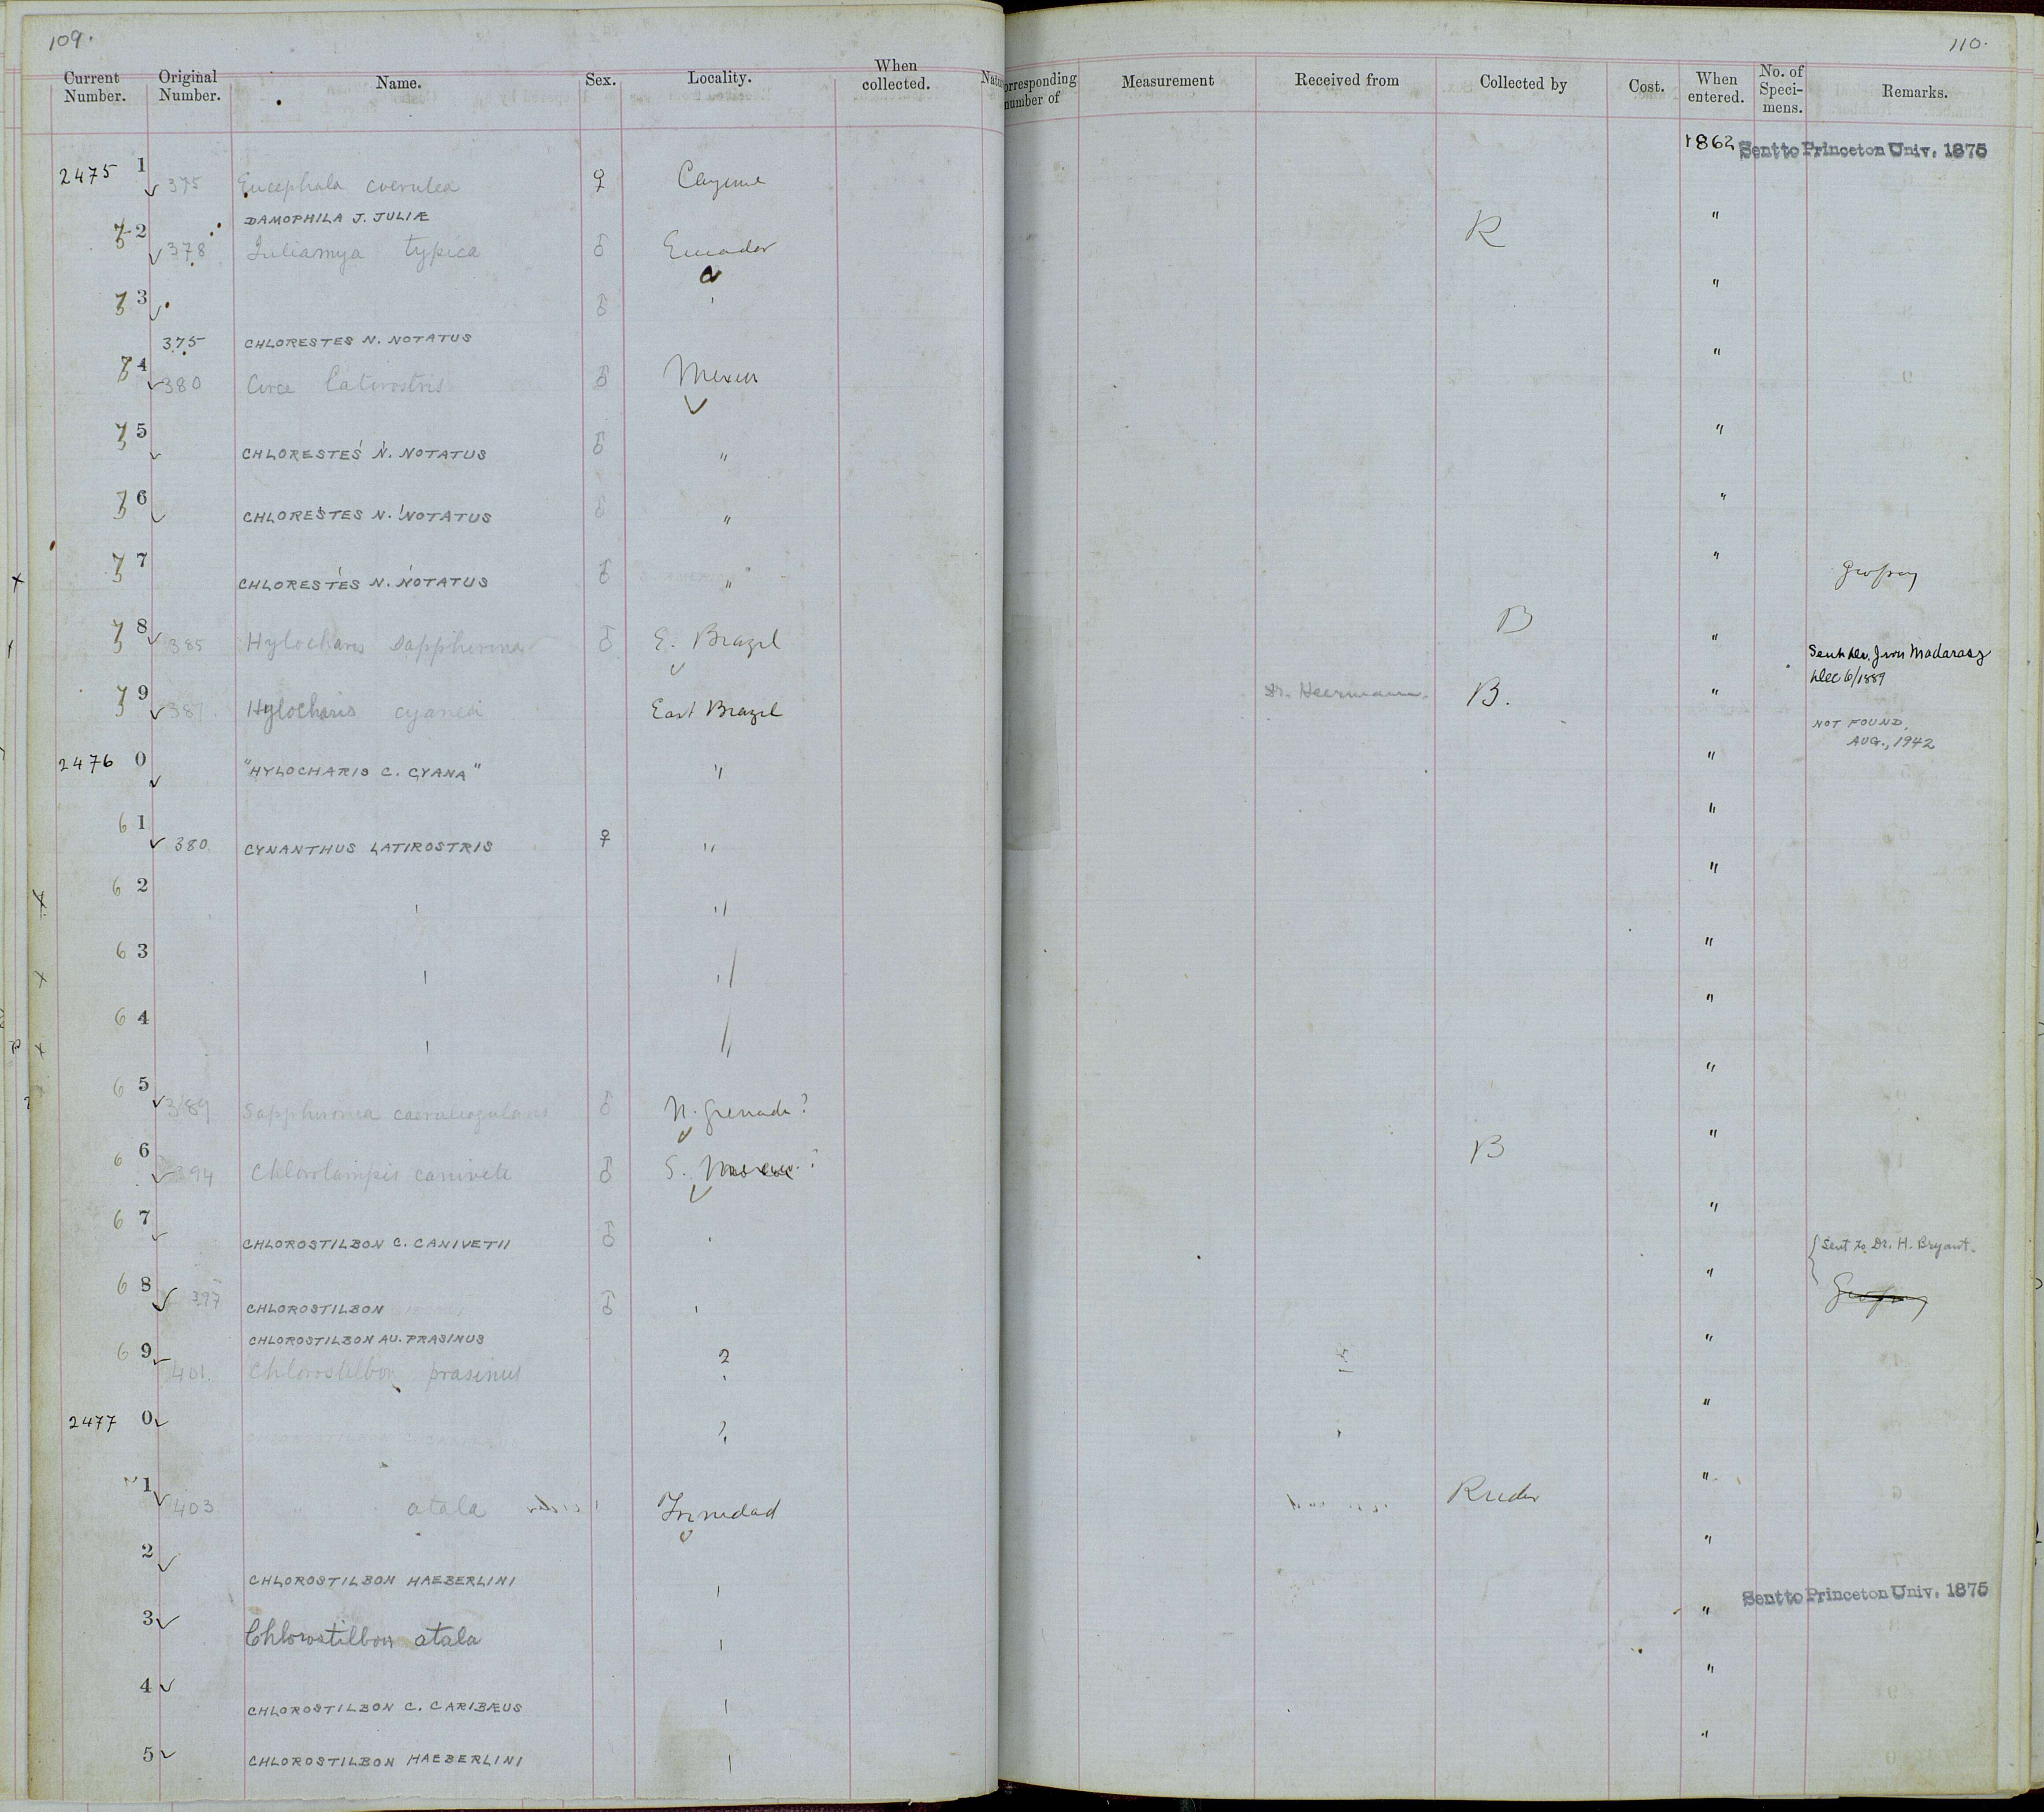 109.
110.
Current Number. Original Number. Name. Sex. Locality. When collected. Natu
orresponding number of Measurement Received from Collected by Cost. When entered. No. of Speci-mens. Remarks.
2475 1 375 Eucephala coerulea ♀ Cayenne 1862 Sent to Princeton Univ. 1875
DAMOPHILA J. JULIÆ
2 378 Juliamya typica ♂ Ecuador R "
3 ♂ "
375 CHLORESTES N. NOTATUS
4 380 Circe latirostris ♂ Mexico "
5 CHLORESTES N. NOTATUS ♂ " "
6 CHLORESTES N. NOTATUS ♂ " "
7 CHLORESTES N. NOTATUS ♂ " "
8 385 Hylocharis Sapphirina ♂ E. Brazil B "
Dec 6/1889
9 387 Hylocharis cyanea East Brazil Dr. Heermann. B. "
NOT FOUND.
AUG., 1942
2476 0 "HYLOCHARIS C. CYANA" " "
6 1 380 CYNANTHUS LATIROSTRIS ♀ " "
6 2 " "
6 3 " "
6 4 " "
6 5 389 Sapphironia caeruleogularis ♂ N. Grenada? "
6 6 394 Chlorolampis caniveti ♂ S. Mexico? B "
6 7 CHLOROSTILBON C. CANIVETII ♂ " Sent to Dr. H. Bryant.
6 8 397 CHLOROSTILBON ♂ "
CHLOROSTILBON AU. PRASINUS
6 9 401. Chlorostilbon prasinus ? "
2477 0 ? "
1 403 " atala Trinidad "
2 CHLOROSTILBON HAEBERLINI "
3 Chlorostilbon atala " Sent to Princeton Univ. 1875
4 CHLOROSTILBON C. CARIBÆUS "
5 CHLOROSTILBON HAEBERLINI "